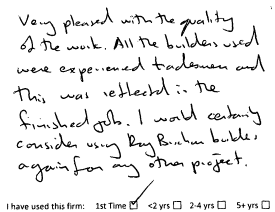 Very pleased with the quality
of the work. All the builders used
were experienced tradesmen and
this was reflected in the
finished job. I would certainly
consider using Ray builders
again for any other project.
I have used this firm: 1st Time ☑ <2 yrs ☐ 2-4 yrs ☐ 5+ yrs ☐